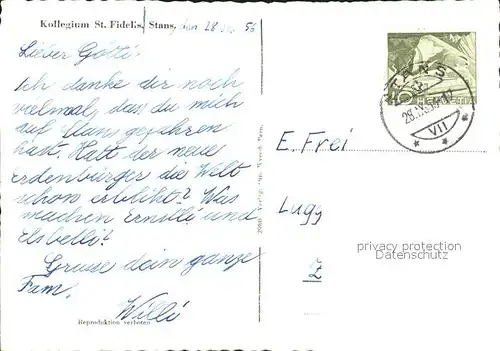 Kollegium St. Fidelis, Stans. den 28. 56
Lieber Götti!
Ich danke dir noch
vielmals, dass du mich
auf Stans gefahren
hast. Hatt der neue
Erdenbürger die Welt
schon erblikt? Was
machen Ernstli und
Elsbetli?
Grüsse dein ganze
Fam.
Willi
Reproduktion verboten
STANS
HELVETIA
VII
E. Frei
Lugg
Z
privacy protection
Datenschutz